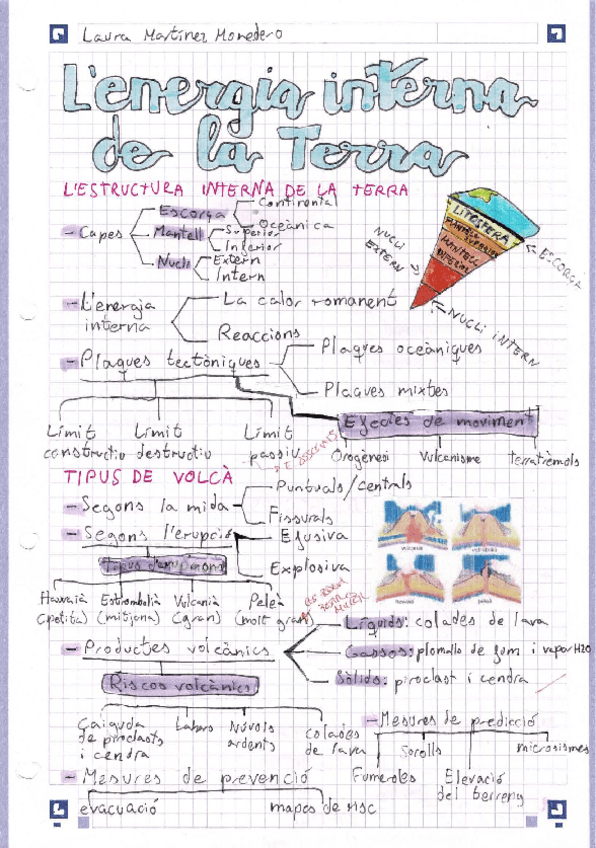 Laura Martínez Monedero
L'energia interna
de la Terra
L'ESTRUCTURA INTERNA DE LA TERRA
- Capes
Escorça
Continental
Oceànica
Mantell
Superior
Inferior
Nucli
Extern
Intern
LITOSFERA
MANTELL
SUPERIOR
MANTELL
INFERIOR
NUCLI
EXTERN
ESCORÇA
NUCLI INTERN
- L'energia
interna
La calor romanent
Reaccions
- Plaques tectòniques
Plaques oceàniques
Plaques mixtes
Límit
constructiu
Límit
destructiu
Límit
passiu
Efectes de moviment
Orogènesi
Vulcanisme
terratrèmols
TIPUS DE VOLCÀ
- Segons la mida
Puntuals/centrals
Fissurals
- Segons l'erupció
Efusiva
Explosiva
Tipus d'erupcions
Hawaià
(petita)
Estrombolià
(mitjana)
Vulcanià
(gran)
Peleà
(molt gran)
- Productes volcànics
Líquids: colades de lava
Gasos: plomallo de fum i vapor H2O
Sòlids: piroclast i cendra
Riscos volcànics
Caiguda
de piroclasts
i cendra
Lahars
Núvols
ardents
colades
de lava
- Mesures de predicció
Fumeroles
Sorolls
Elevació
del terreny
microsismes
- Mesures de prevenció
evacuació
mapes de risc